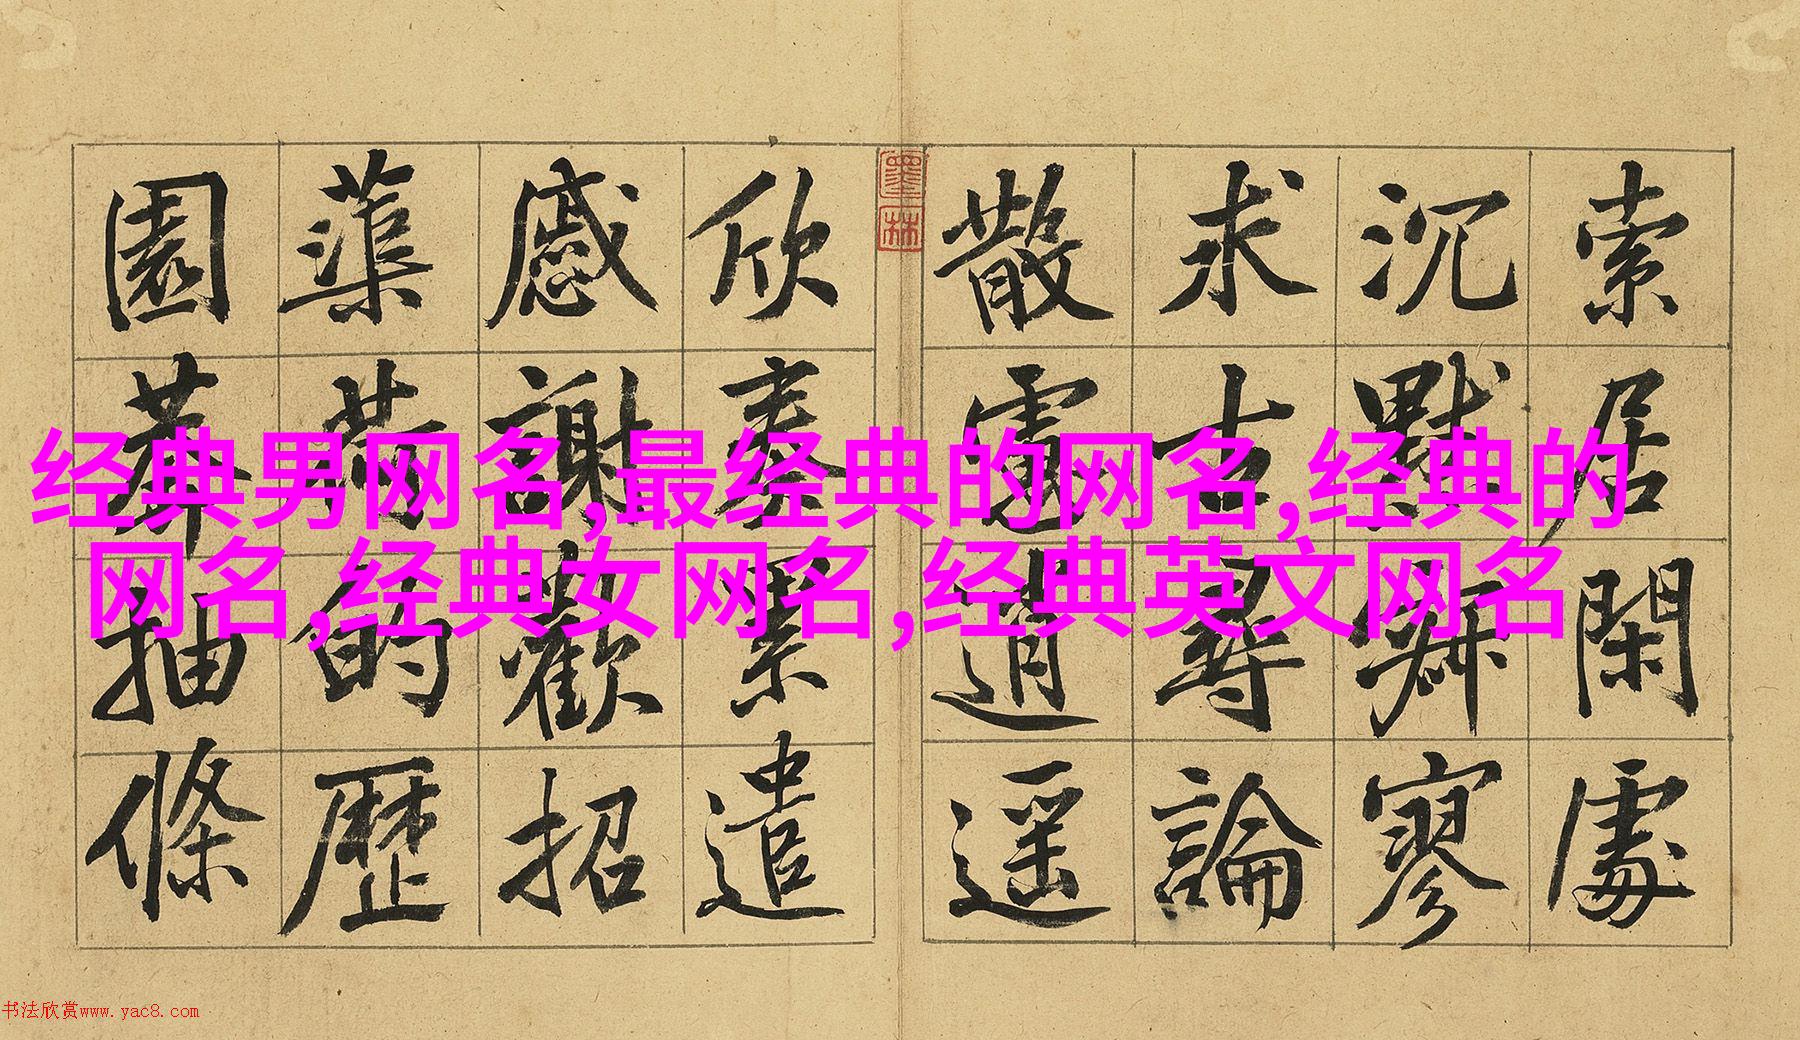 索居閑處
沉默寥
求古尋論
散慮逍遥
墨林
欣奏累遣
慼謝歡招
蕖荷的歷
園莽抽條
经典男网名,最经典的网名,经典的
网名,经典女网名,经典英文网名
书法欣赏www.yac8.com